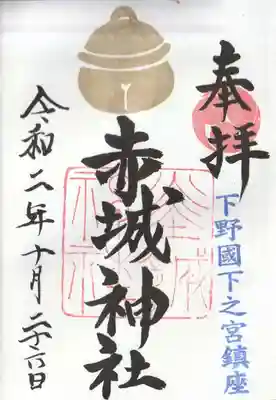 奉拝
下野國下之宮鎮座
赤城神社
令和二年十月二十六日